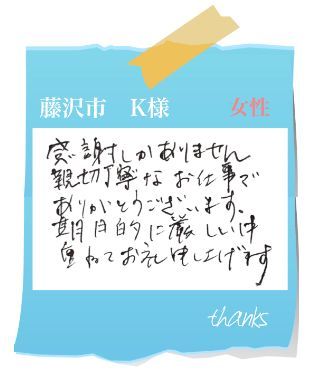 藤沢市　K様　女性
感謝しかありません
親切丁寧なお仕事で
ありがとうございます。
期日的に厳しい中
重ねてお礼申し上げます
thanks